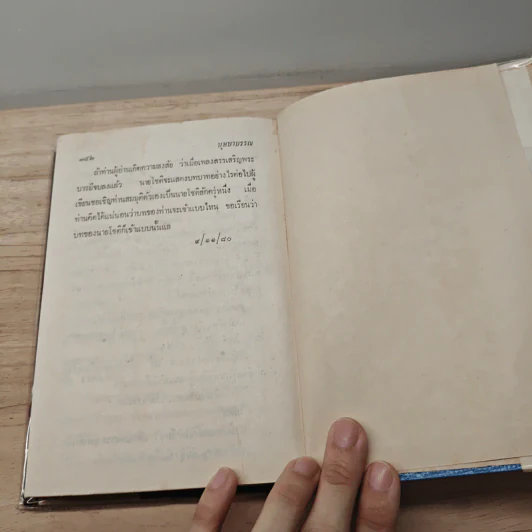 ๓๕๒
บุษยาบรรณ
ถ้าท่านผู้อ่านเกิดความสงสัย ว่าเมื่อเพลงสรรเสริญพระ
บารมีจบลงแล้ว นายโชติจะแสดงบทบาทอย่างไรต่อไปผู้
เขียนขอเชิญท่านสมมุติตัวเองเป็นนายโชติสักครู่หนึ่ง เมื่อ
ท่านคิดได้แน่นอนว่าบทของท่านจะเข้าแบบไหน ขอเรียนว่า
บทของนายโชติก็เข้าแบบนั้นแล
๙/๑๑/๘๐